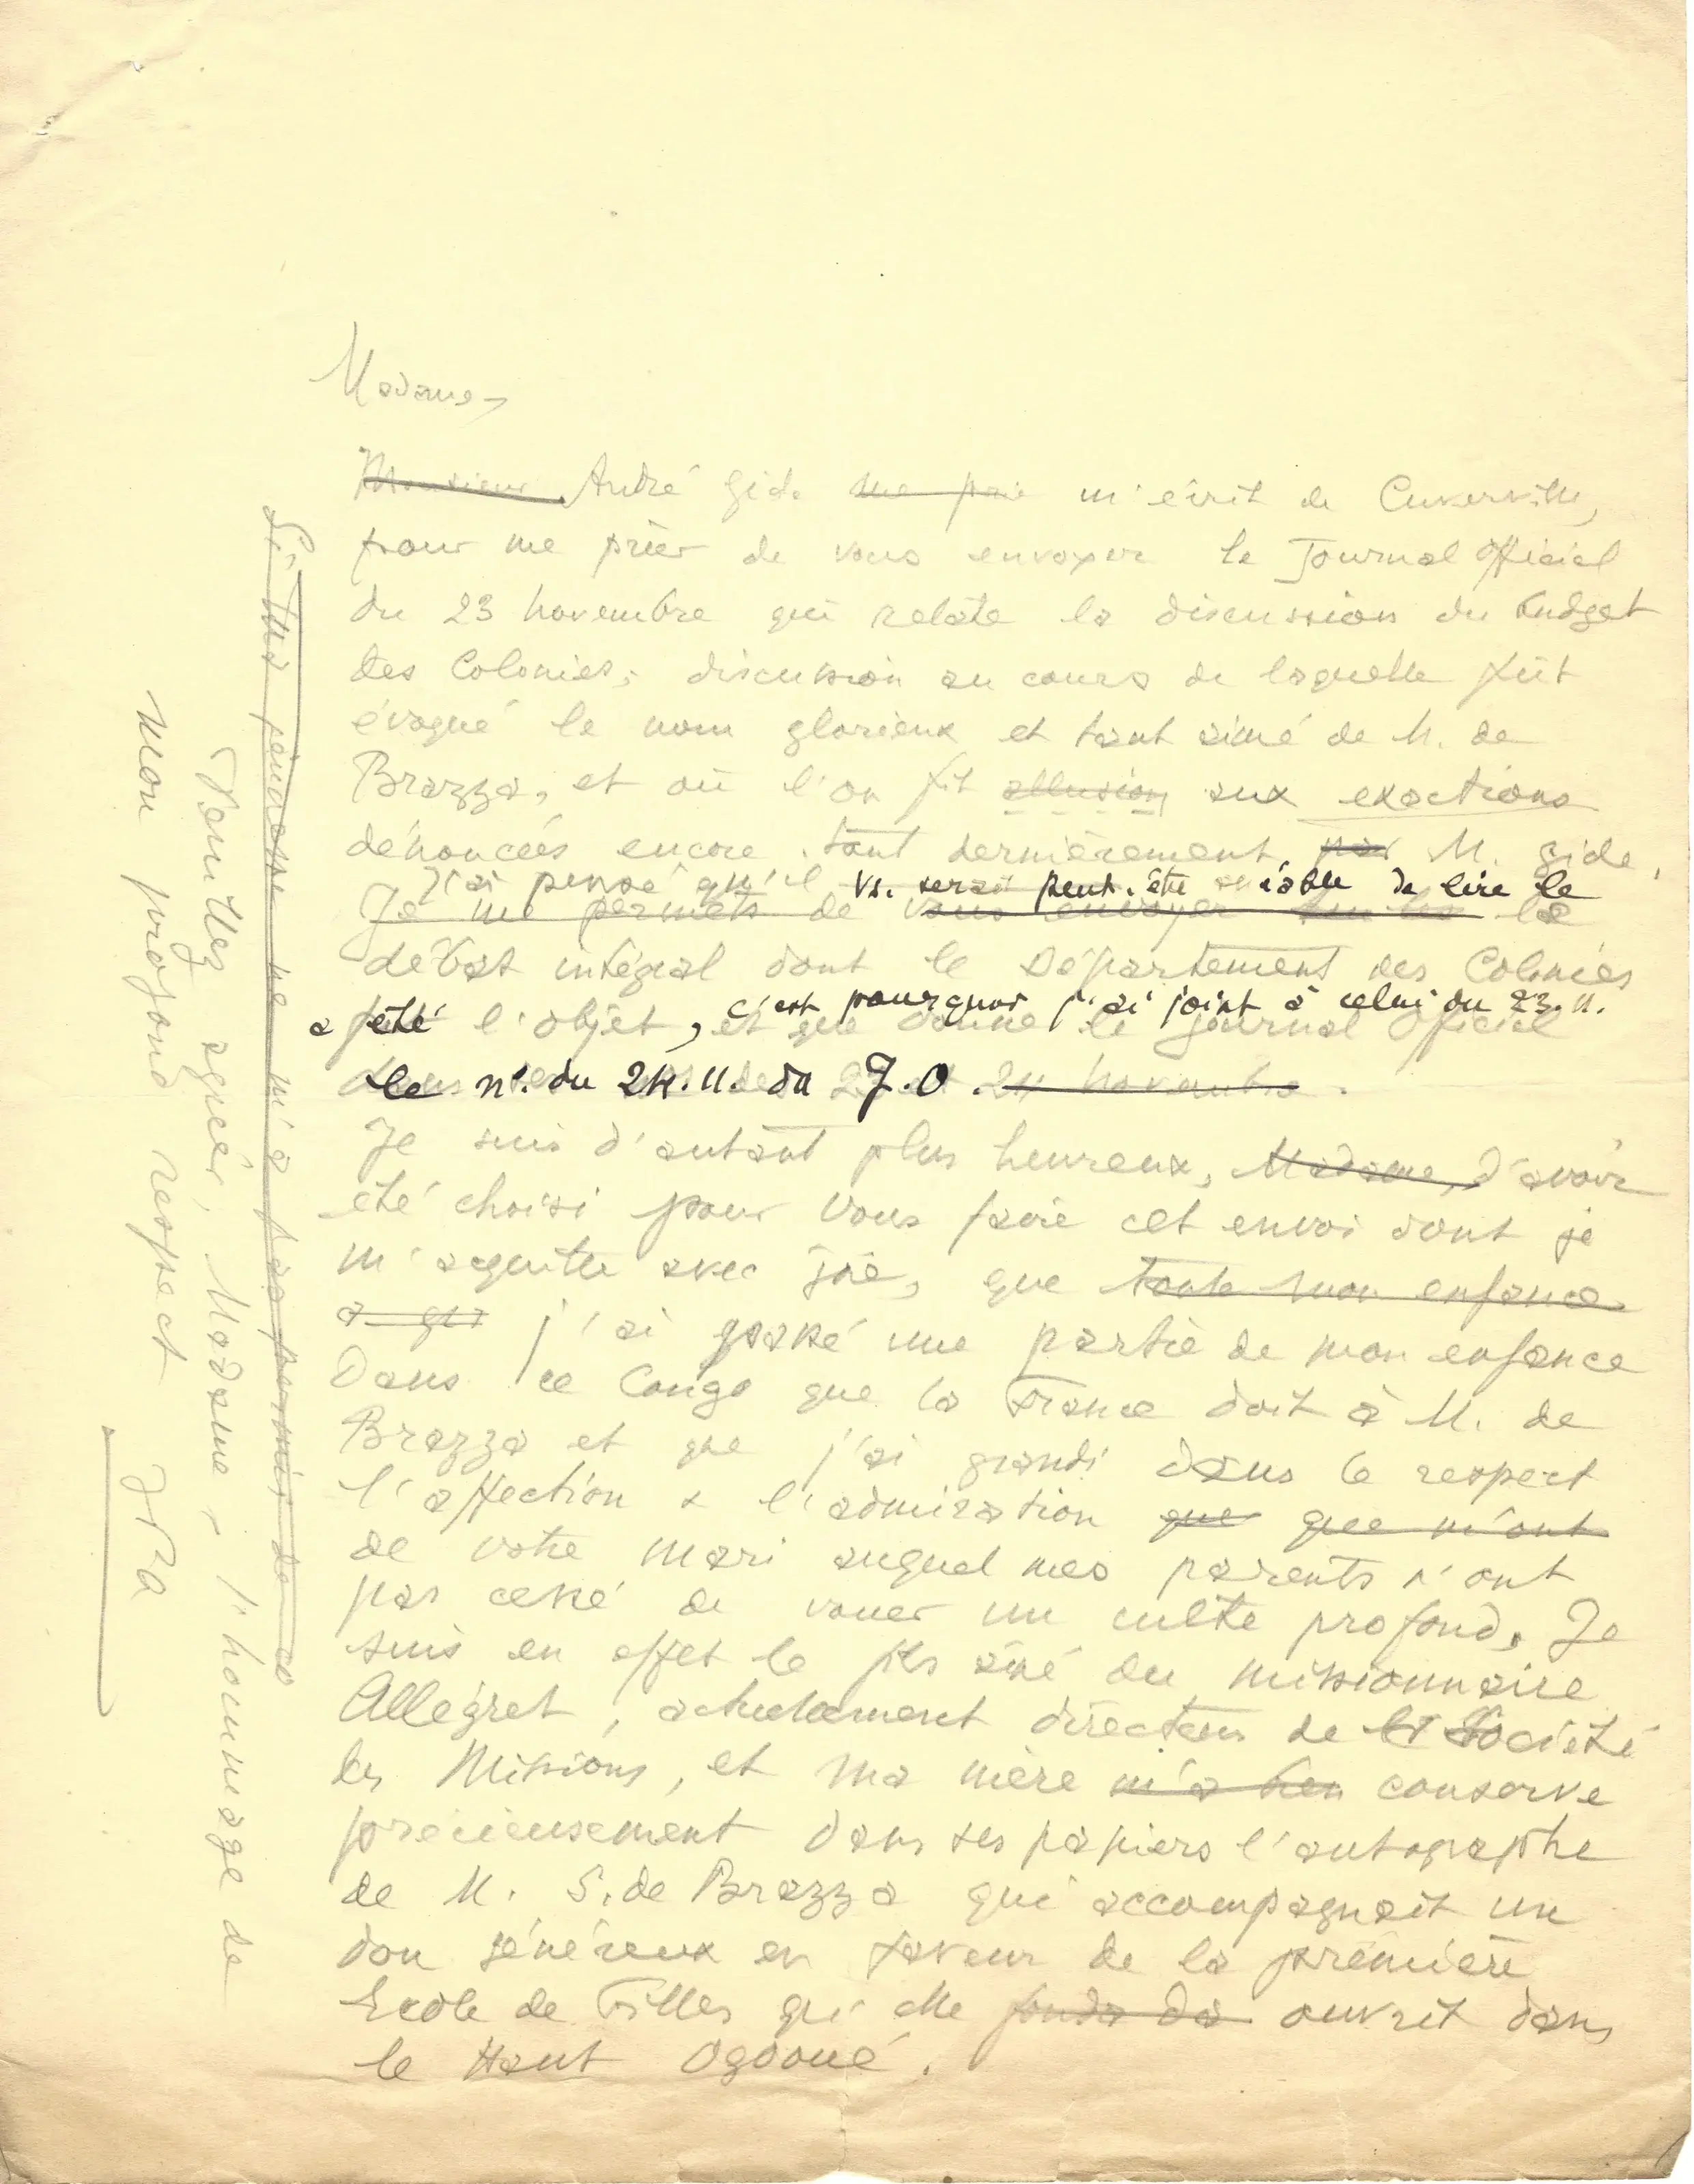 Madame,
Monsieur André Gide me prie m'écrit de Cuverville,
pour me prier de vous envoyer le Journal Officiel
du 23 novembre qui relate la discussion du budget
des Colonies, discussion au cours de laquelle fut
évoqué le nom glorieux et tant aimé de M. de
Brazza, et où l'on fit allusion aux exactions
dénoncées encore tout dernièrement par M. Gide.
J'ai pensé qu'il vs. serait peut-être de lire le
Je me permets de vous envoyer le
débat intégral dont le Département des Colonies
a été l'objet, c'est pourquoi j'ai joint à celui du 23.11.
et que donne le Journal Officiel
le n°. du 24.11. du J.O. 24 novembre.
Je suis d'autant plus heureux, Madame, d'avoir
été choisi pour vous faire cet envoi dont je
m'acquitte avec joie, que toute mon enfance
a qui j'ai passé une partie de mon enfance
Dans ce Congo que la France doit à M. de
Brazza et que j'ai grandi dans le respect
l'affection & l'admiration que que m'ont
de votre mari auquel mes parents n'ont
pas cessé de vouer un culte profond. Je
suis en effet le fils aîné du missionnaire
Allégret, actuellement directeur de la Société
des Missions, et ma mère m'a conserve
précieusement dans ses papiers l'autographe
de M. S. de Brazza qui accompagnait un
don généreux en faveur de la première
Ecole de Filles qu'elle fonda da ouvrit dans
le Haut Ogooué.
Si ma jeunesse ne m'a pas permis de
Veuillez agréer, Madame, l'hommage de
mon profond respect